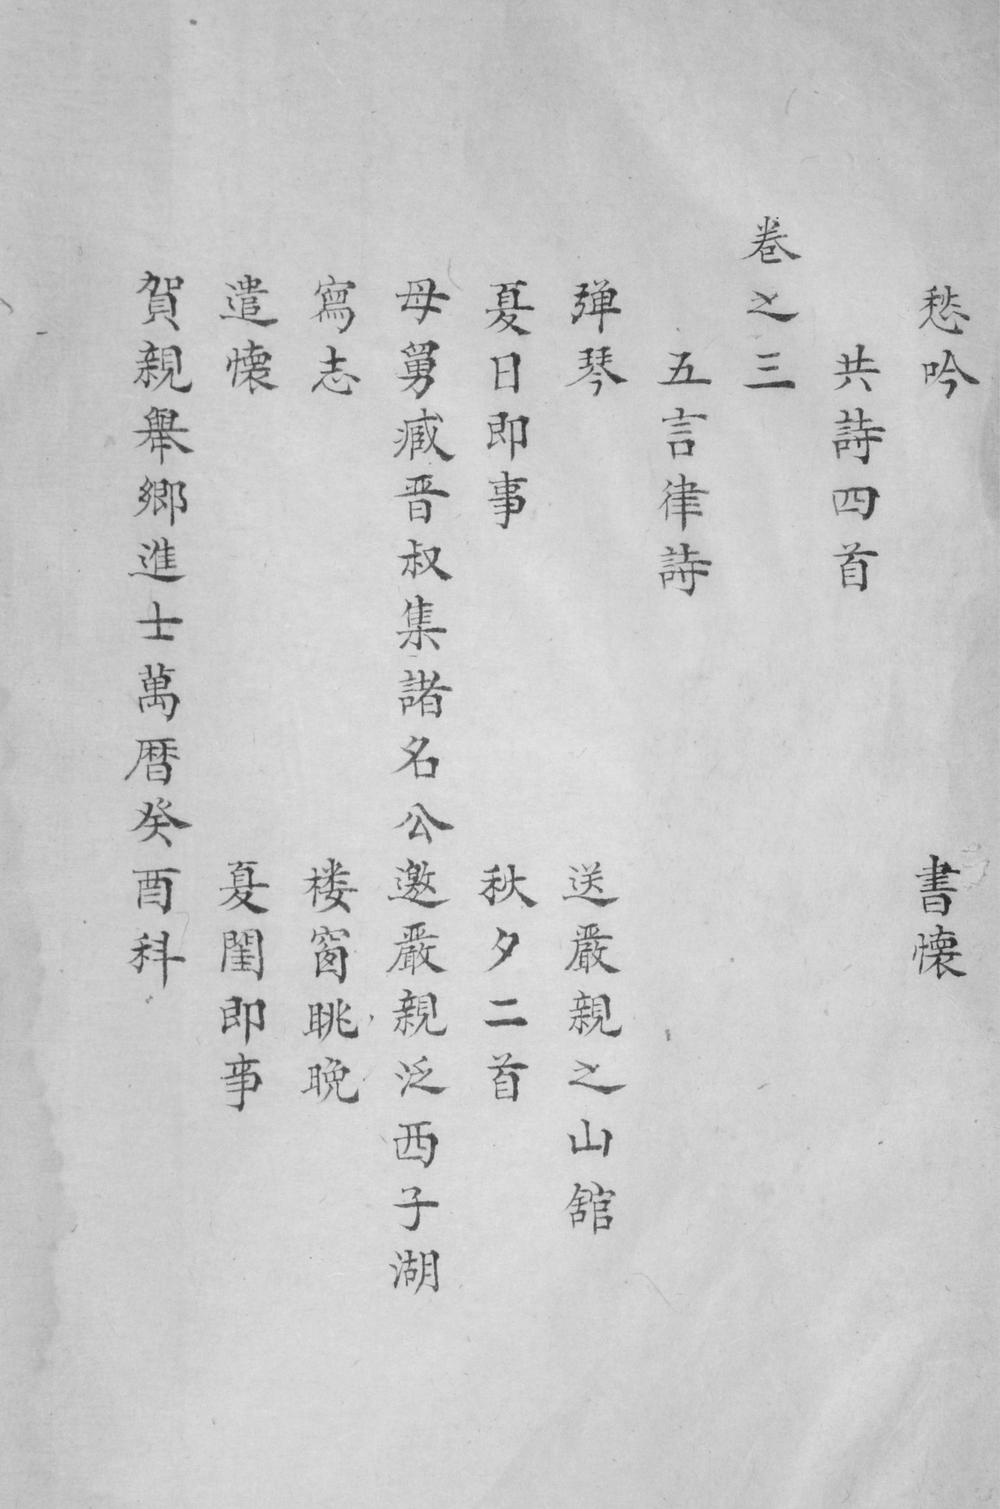 愁吟　書懷
共詩四首
卷之三
五言律詩
弹琴　送嚴親之山舘
夏日即事　秋夕二首
母舅臧晋叔集諸名公邀嚴親泛西子湖
寫志　楼窗眺晚
遣懷　夏閨即事
賀親舉鄉進士萬暦癸酉科